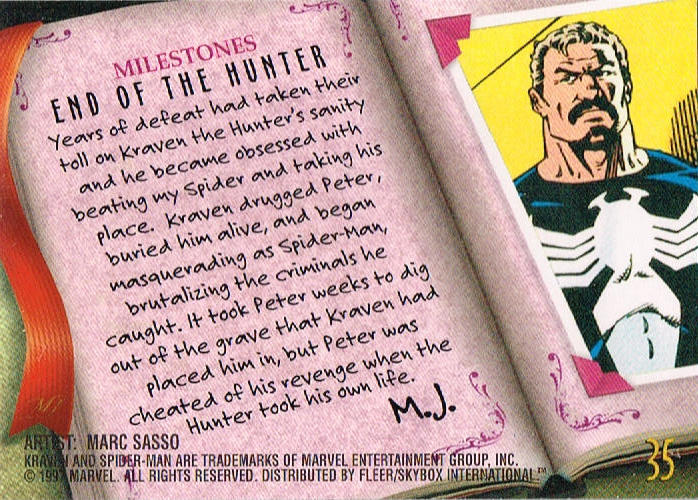 MILESTONES
END OF THE HUNTER
Years of defeat had taken their
toll on Kraven the Hunter's sanity
and he became obsessed with
beating my Spider and taking his
place. Kraven drugged Peter,
buried him alive, and began
masquerading as Spider-Man,
brutalizing the criminals he
caught. It took Peter weeks to dig
out of the grave that Kraven had
placed him in, but Peter was
cheated of his revenge when the
Hunter took his own life.
M.J.
ARTIST: MARC SASSO
KRAVEN AND SPIDER-MAN ARE TRADEMARKS OF MARVEL ENTERTAINMENT GROUP, INC.
© 1997 MARVEL. ALL RIGHTS RESERVED. DISTRIBUTED BY FLEER/SKYBOX INTERNATIONAL.™
35